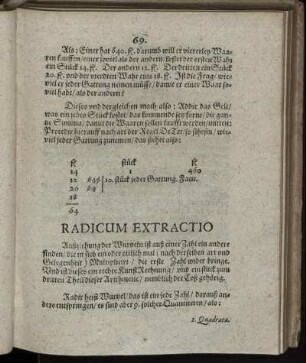 69.
Als: Einer hat 640. fl. darumb will er viererley Waa-
ren kauffen/ einer soviel als der andern/ kostet der ersten Wahr
ein Stück 14. fl. Der andern 12. fl. Der dritten ein Stück
20. fl. vnd der vierdten Wahr eins 18. fl. Ist die Frag/ wie-
viel er jeder Gattung nemen müsse/ damit er einer Waar so-
viel hab/ als der andern?
Dieses vnd dergleichen mach also: Addir das Gelt/
was ein jedes Stück kostet/ das kommende setz forne/ die gan-
tze Summa/ damit die Waaren sollen kaufft werden/ hinten:
Procedir hierauff nach art der Regel DeTri/ so sihestu/ wie-
viel jeder Gattung zunemen/ das stehet also:
fl. stück fl.
14 1 640
12 640 10. stück jeder Gattung. Facit.
20 64
18
64
RADICUM EXTRACTIO
Außziehung der Wurtzeln ist auß einer Zahl ein andere
finden/ die in sich ein oder etlich mal (nach derselben art vnd
Gelegenheit) Multiplicirt/ die erste Zahl wider bringe.
Vnd ist dieses ein rechte Kunst Rechnung/ vnd ein stück zum
dritten Theil dieser Arithmetic/ nemblich der Coß gehörig.
Radix heist Wurtzel/ das ist ein jede Zahl/ darauß an-
dere entspringen/ es sind aber 9. solcher Quantiteten/ als:
1. Quadrata.